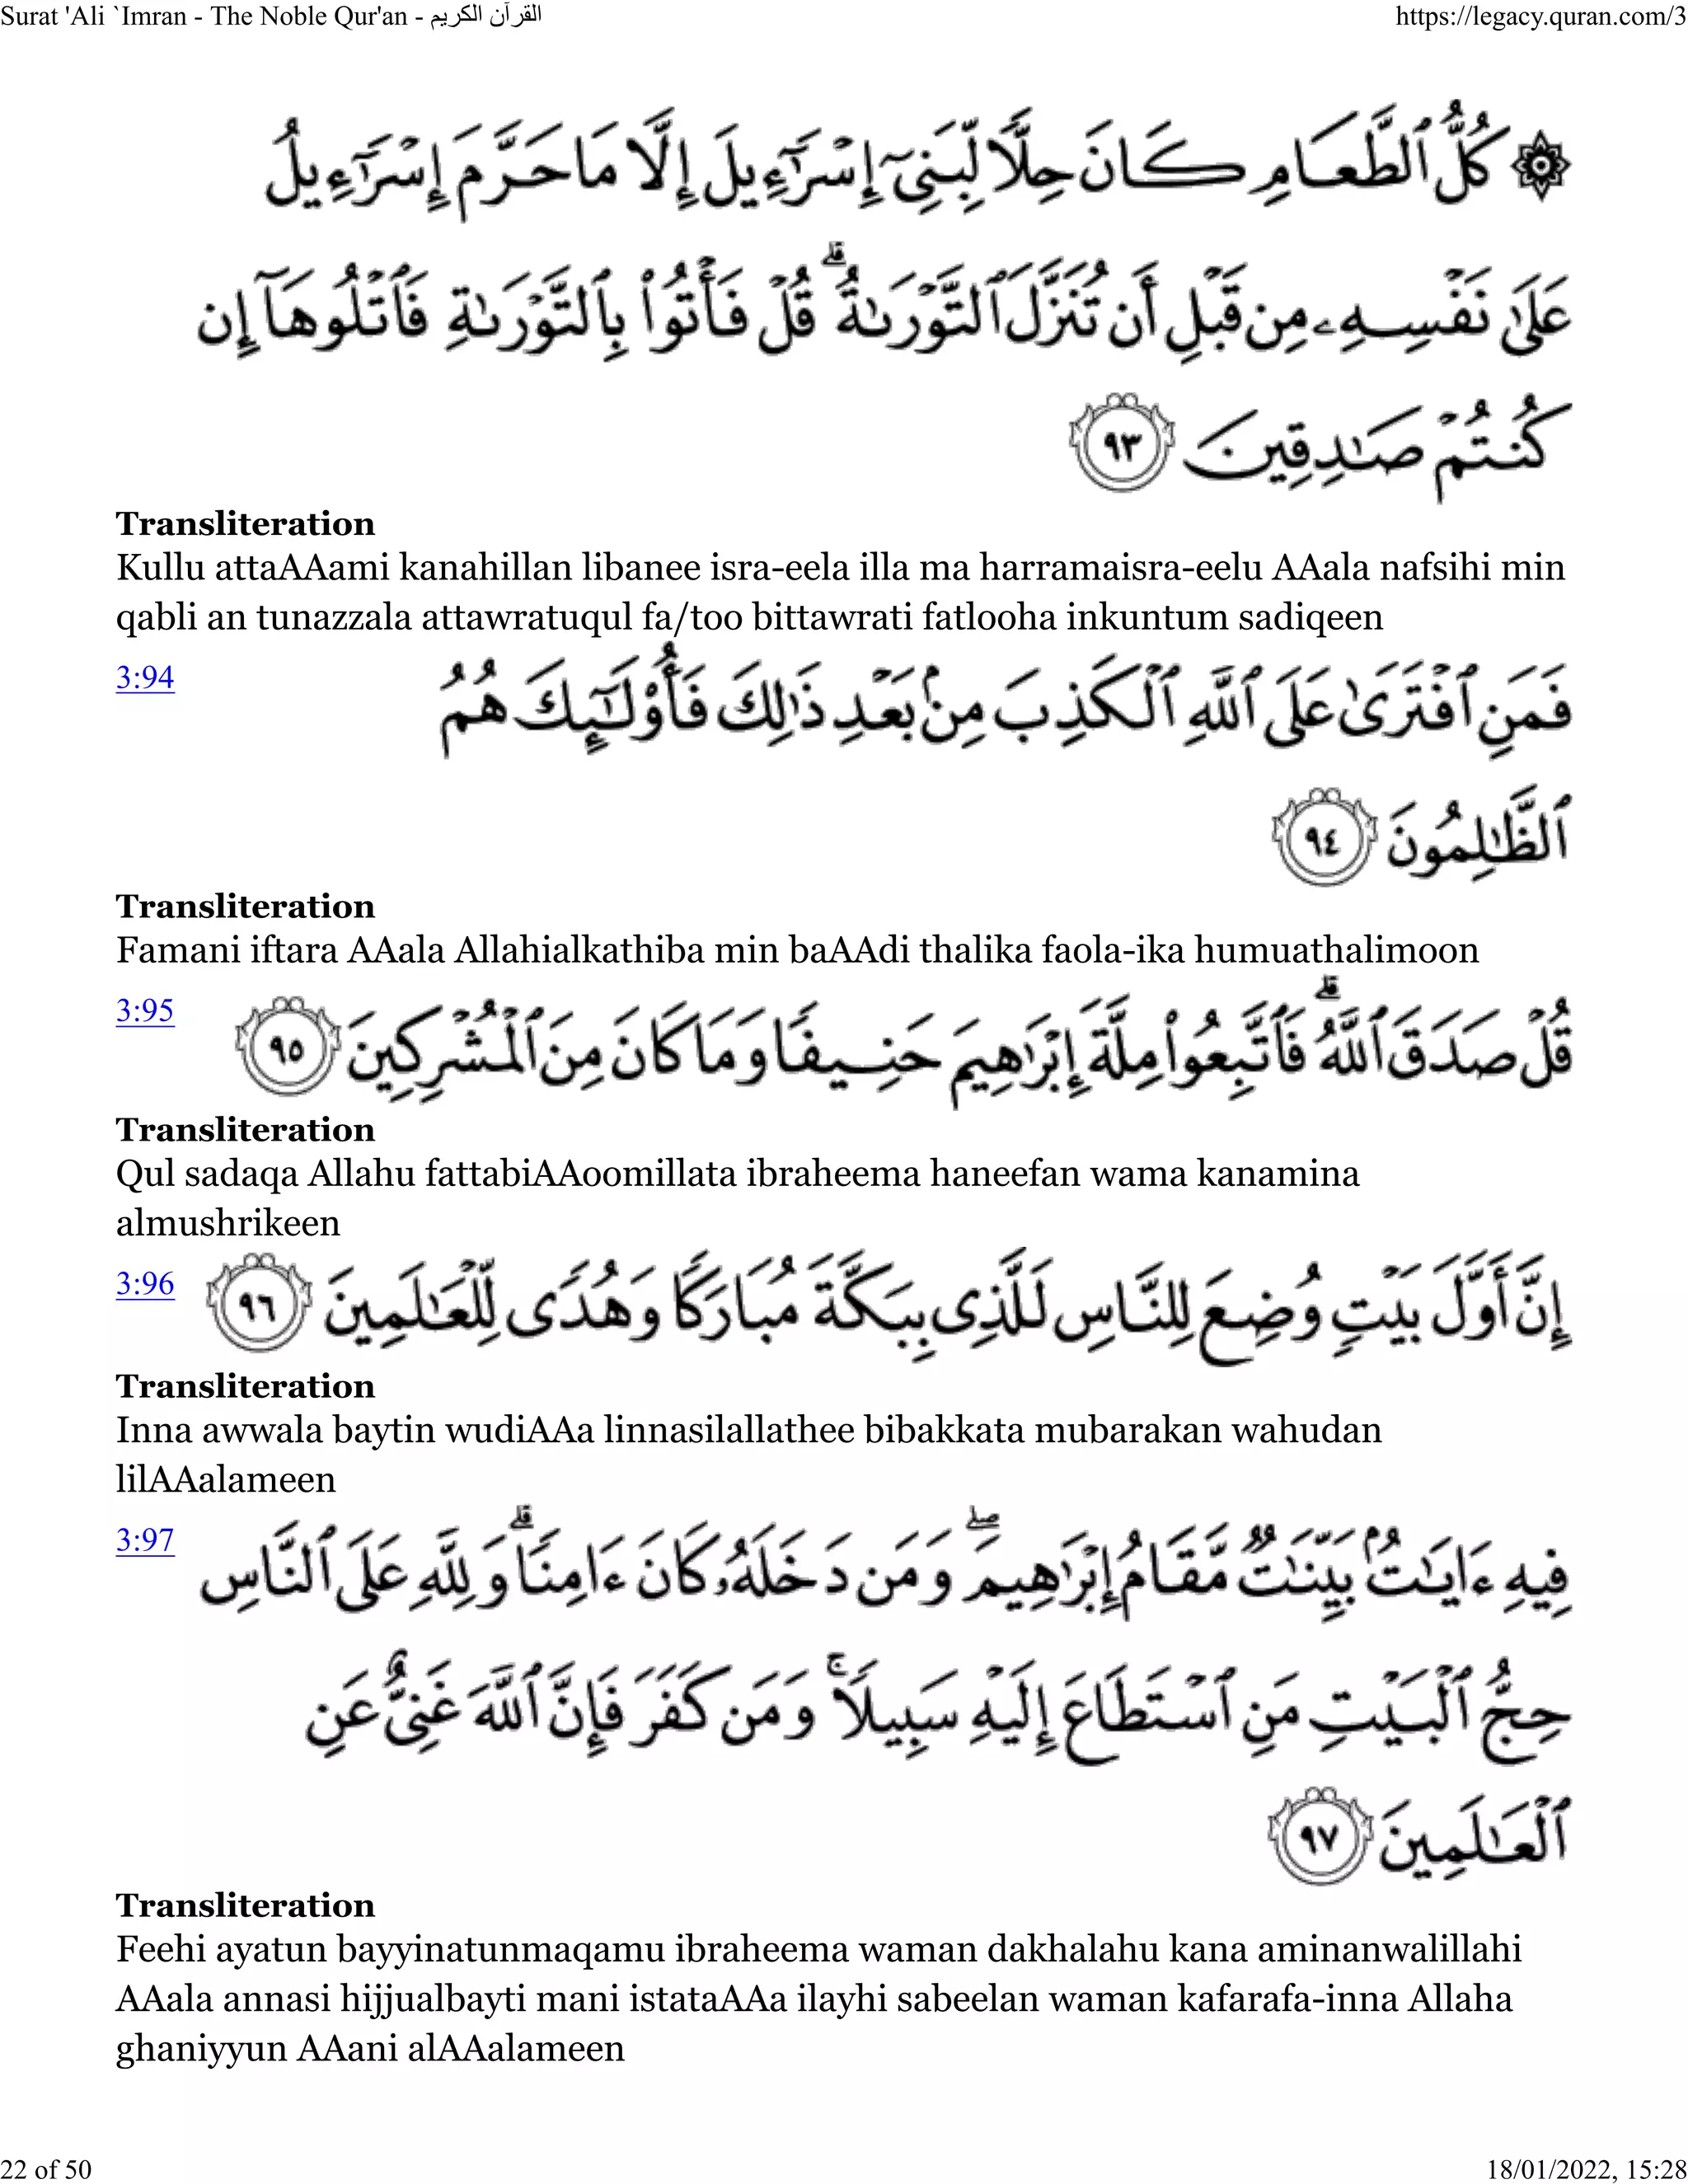 Surat 'Ali `Imran - The Noble Qur'an - القرآن الكريم
https://legacy.quran.com/3
۞ كُلُّ ٱلطَّعَامِ كَانَ حِلًّا لِّبَنِىٓ إِسْرَٰٓءِيلَ إِلَّا مَا حَرَّمَ إِسْرَٰٓءِيلُ
عَلَىٰ نَفْسِهِۦ مِن قَبْلِ أَن تُنَزَّلَ ٱلتَّوْرَىٰةُ ۗ قُلْ فَأْتُوا۟ بِٱلتَّوْرَىٰةِ فَٱتْلُوهَآ إِن
كُنتُمْ صَٰدِقِينَ ٩٣
Transliteration
Kullu attaAAami kanahillan libanee isra-eela illa ma harramaisra-eelu AAala nafsihi min
qabli an tunazzala attawratuqul fa/too bittawrati fatlooha inkuntum sadiqeen
3:94
فَمَنِ ٱفْتَرَىٰ عَلَى ٱللَّهِ ٱلْكَذِبَ مِنۢ بَعْدِ ذَٰلِكَ فَأُو۟لَٰٓئِكَ هُمُ
ٱلظَّٰلِمُونَ ٩٤
Transliteration
Famani iftara AAala Allahialkathiba min baAAdi thalika faola-ika humuathalimoon
3:95
قُلْ صَدَقَ ٱللَّهُ ۗ فَٱتَّبِعُوا۟ مِلَّةَ إِبْرَٰهِيمَ حَنِيفًا وَمَا كَانَ مِنَ ٱلْمُشْرِكِينَ ٩٥
Transliteration
Qul sadaqa Allahu fattabiAAoomillata ibraheema haneefan wama kanamina
almushrikeen
3:96
إِنَّ أَوَّلَ بَيْتٍ وُضِعَ لِلنَّاسِ لَلَّذِى بِبَكَّةَ مُبَارَكًا وَهُدًى لِّلْعَٰلَمِينَ ٩٦
Transliteration
Inna awwala baytin wudiAAa linnasilallathee bibakkata mubarakan wahudan
lilAAalameen
3:97
فِيهِ ءَايَٰتٌۢ بَيِّنَٰتٌ مَّقَامُ إِبْرَٰهِيمَ ۖ وَمَن دَخَلَهُۥ كَانَ ءَامِنًا ۗ وَلِلَّهِ عَلَى ٱلنَّاسِ
حِجُّ ٱلْبَيْتِ مَنِ ٱسْتَطَاعَ إِلَيْهِ سَبِيلًا ۚ وَمَن كَفَرَ فَإِنَّ ٱللَّهَ غَنِىٌّ عَنِ
ٱلْعَٰلَمِينَ ٩٧
Transliteration
Feehi ayatun bayyinatunmaqamu ibraheema waman dakhalahu kana aminanwalillahi
AAala annasi hijjualbayti mani istataAAa ilayhi sabeelan waman kafarafa-inna Allaha
ghaniyyun AAani alAAalameen
22 of 50
18/01/2022, 15:28